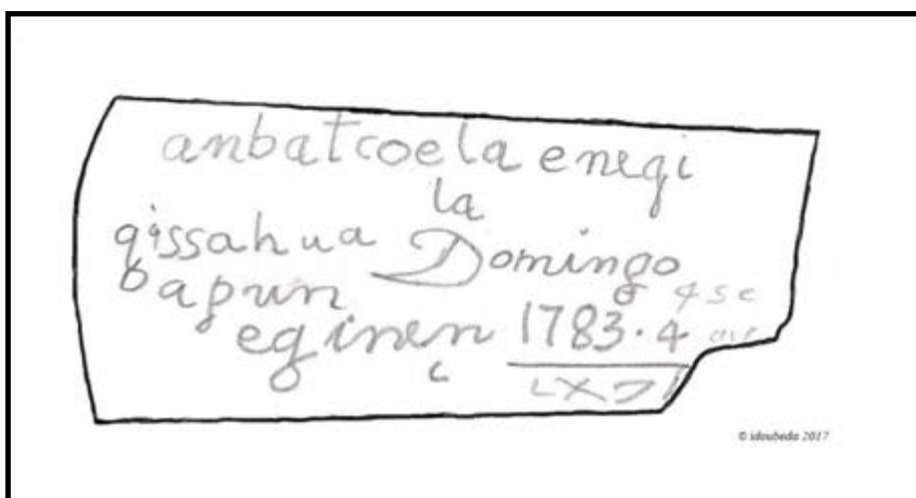 anbatcoela enegi
la
qissahua Domingo
bapun
eginen 1783·4
© idoubeda 2017